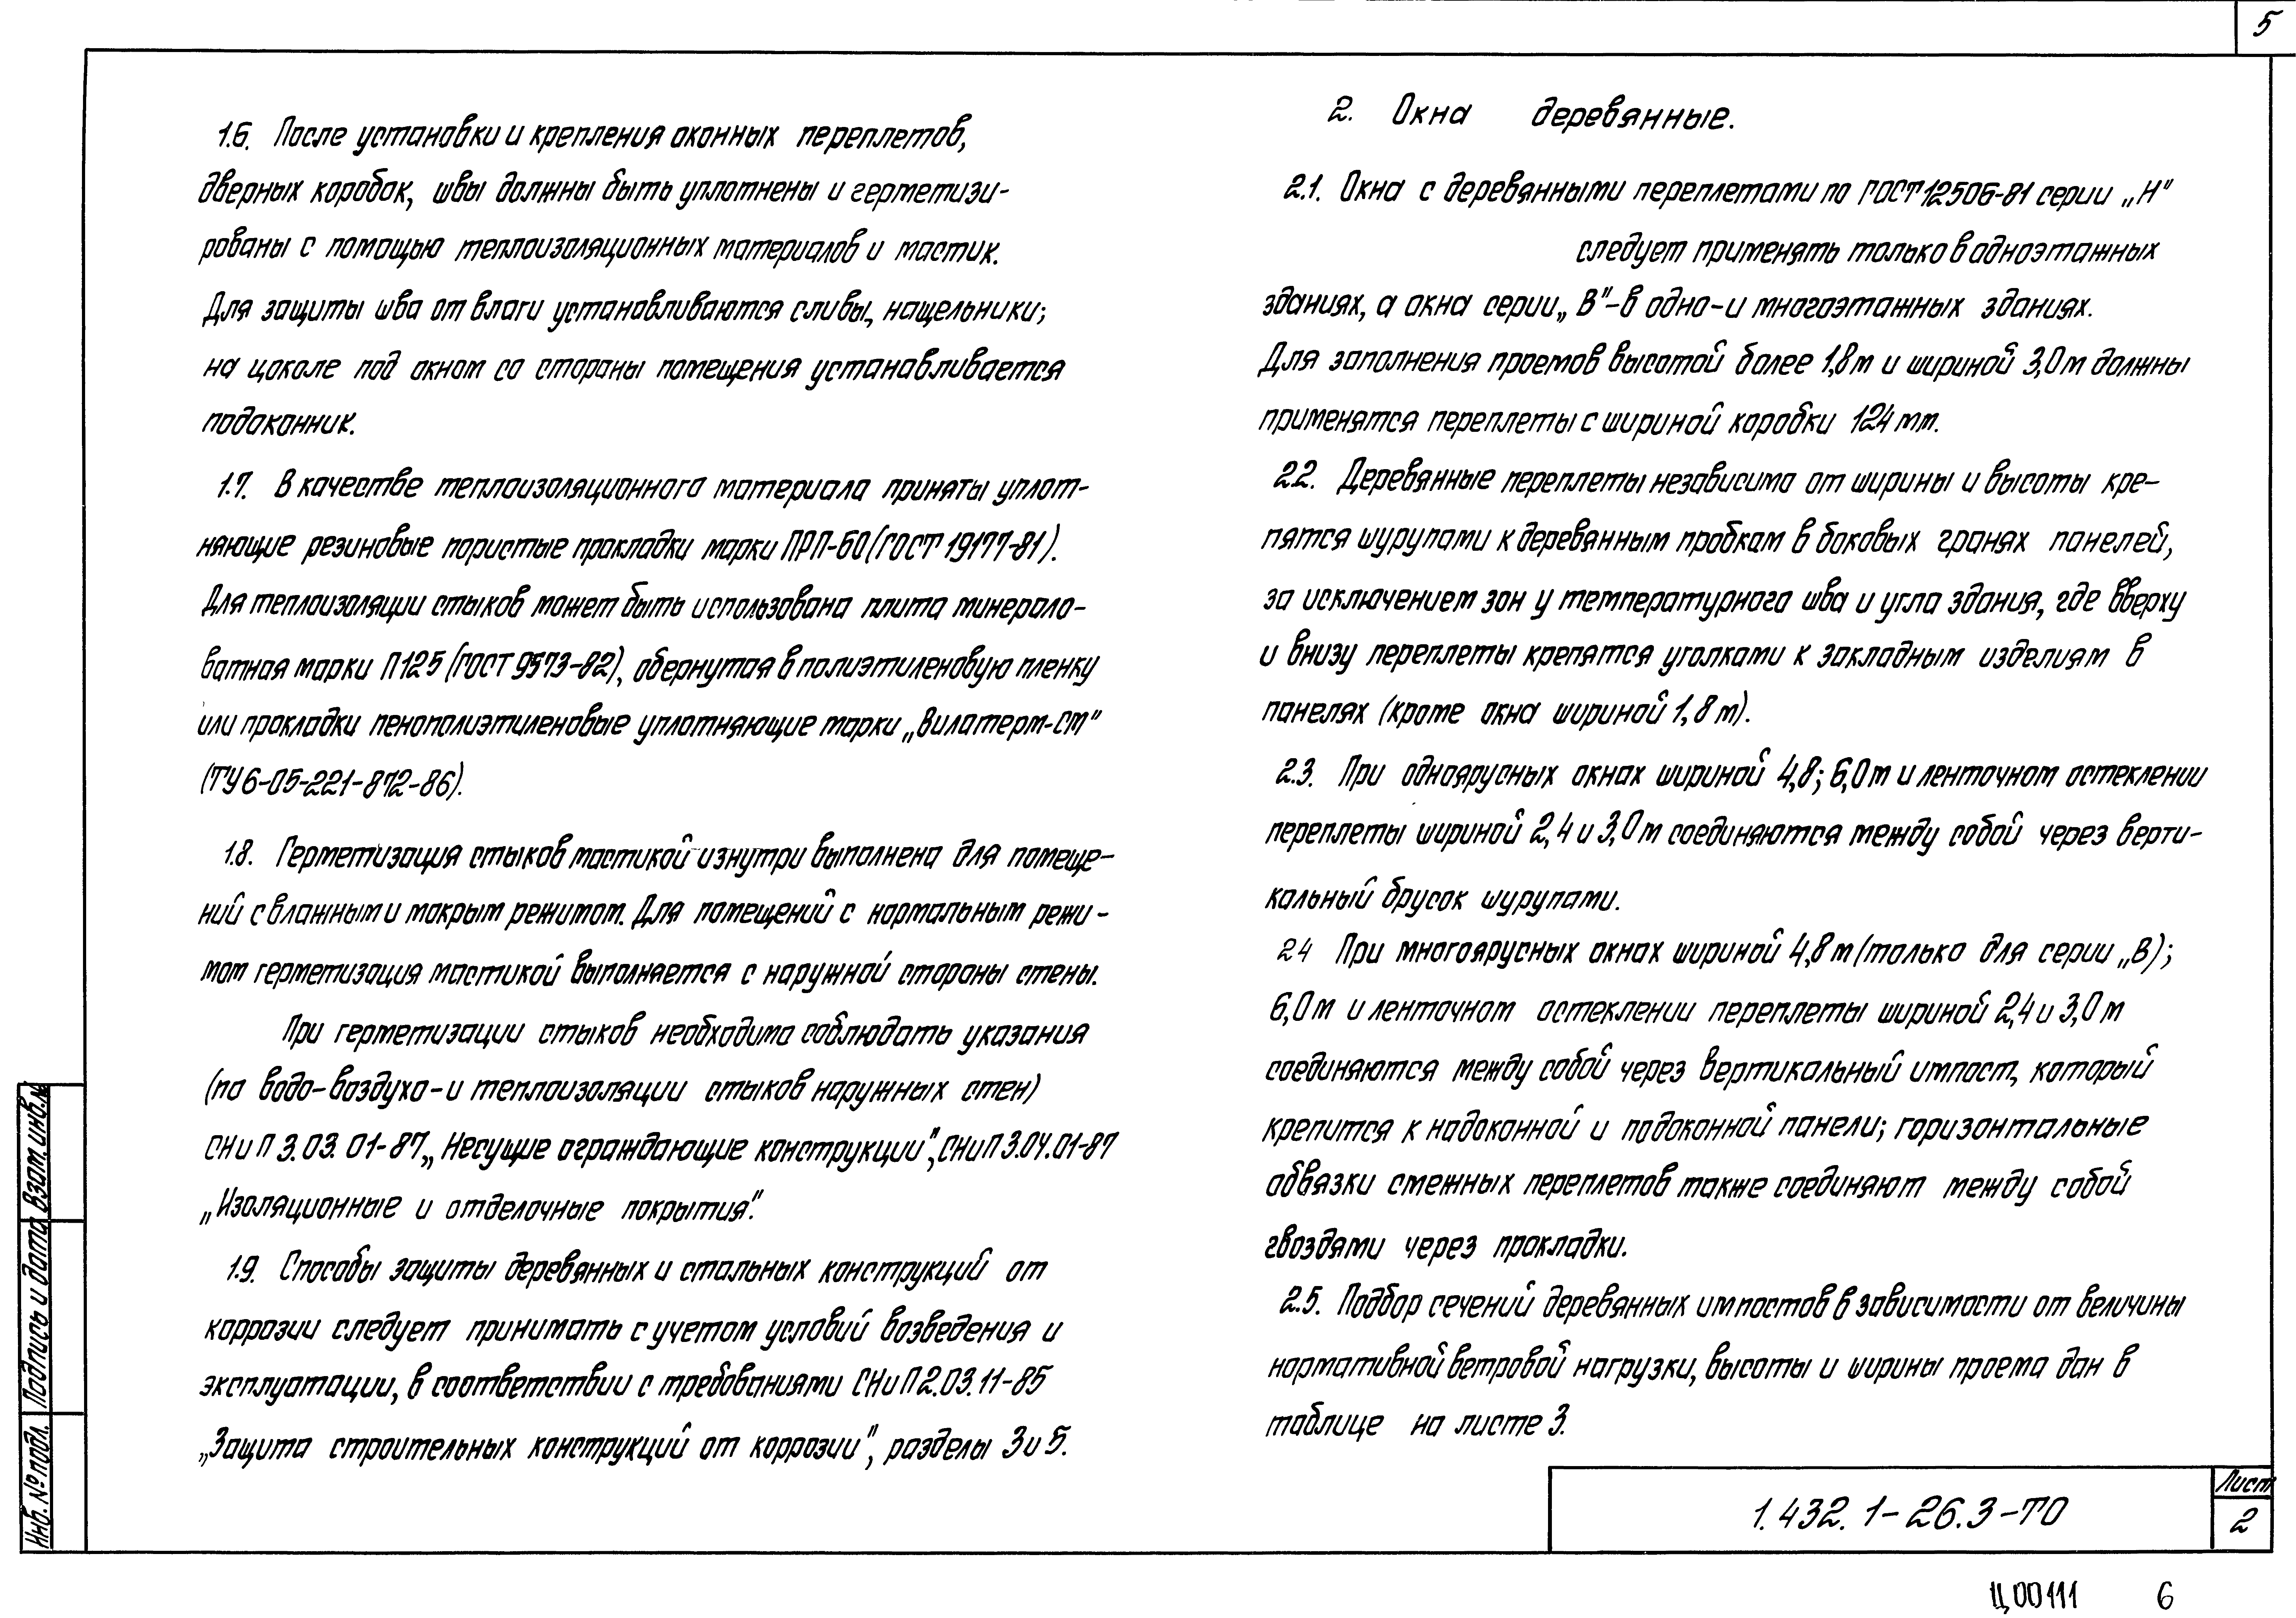 5
1.6. После установки и крепления оконных переплетов,
дверных коробок, швы должны быть уплотнены и герметизи-
рованы с помощью теплоизоляционных материалов и мастик.
Для защиты шва от влаги устанавливаются сливы, нащельники;
на цоколе под окном со стороны помещения устанавливается
подоконник.
1.7. В качестве теплоизоляционного материала приняты уплот-
няющие резиновые пористые прокладки марки ПРП-60 (ГОСТ 19177-81).
Для теплоизоляции стыков может быть использована плита минерало-
ватная марки П125 (ГОСТ 9573-82), обернутая в полиэтиленовую пленку
или прокладки пенополиэтиленовые уплотняющие марки „Вилатерм-СМ"
(ТУ6-05-221-872-86).
1.8. Герметизация стыков мастикой изнутри выполнена для помеще-
ний с влажным и мокрым режимом. Для помещений с нормальным режи-
мом герметизация мастикой выполняется с наружной стороны стены.
При герметизации стыков необходимо соблюдать указания
(по водо-воздухо-и теплоизоляции стыков наружных стен)
СНиП 3.03.01-87 „Несущие ограждающие конструкции", СНиП 3.04.01-87
„Изоляционные и отделочные покрытия".
1.9. Способы защиты деревянных и стальных конструкций от
коррозии следует принимать с учетом условий возведения и
эксплуатации, в соответствии с требованиями СНиП 2.03.11-85
„Защита строительных конструкций от коррозии", разделы 3 и 5.
2. Окна деревянные.
2.1. Окна с деревянными переплетами по ГОСТ 12506-81 серии „Н"
следует применять только в одноэтажных
зданиях, а окна серии „В"-в одно-и многоэтажных зданиях.
Для заполнения проемов высотой более 1,8м и шириной 3,0м должны
применятся переплеты с шириной коробки 124 мм.
2.2. Деревянные переплеты независимо от ширины и высоты кре-
пятся шурупами к деревянным пробкам в боковых гранях панелей,
за исключением зон у температурного шва и угла здания, где вверху
и внизу переплеты крепятся уголками к закладным изделиям в
панелях (кроме окна шириной 1,8 м).
2.3. При одноярусных окнах шириной 4,8; 6,0м и ленточном остеклении
переплеты шириной 2,4 и 3,0 м соединяются между собой через верти-
кальный брусок шурупами.
2.4 При многоярусных окнах шириной 4,8 м (только для серии „В);
6,0м и ленточном остеклении переплеты шириной 2,4 и 3,0 м
соединяются между собой через вертикальный импост, который
крепится к надоконной и подоконной панели; горизонтальные
обвязки смежных переплетов также соединяют между собой
гвоздями через прокладки.
2.5. Подбор сечений деревянных импостов в зависимости от величины
нормативной ветровой нагрузки, высоты и ширины проема дан в
таблице на листе 3.
Инв. № подл. Подпись и дата Взам. инв. №
1.432.1-26.3-ТО
Лист
2
Ц00111 6